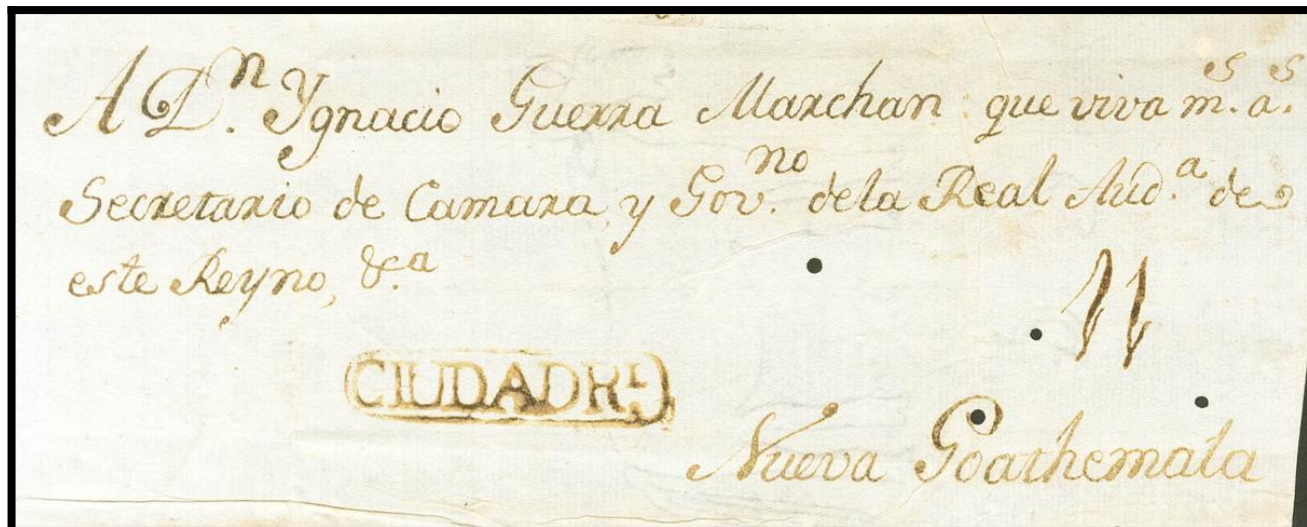 A Dn. Ygnacio Guerra Marchan que viva ms. as.
Secretario de Camara, y Govno. dela Real Auda. de
este Reyno, &ca
11
CIUDAD RL
Nueva Goathemala